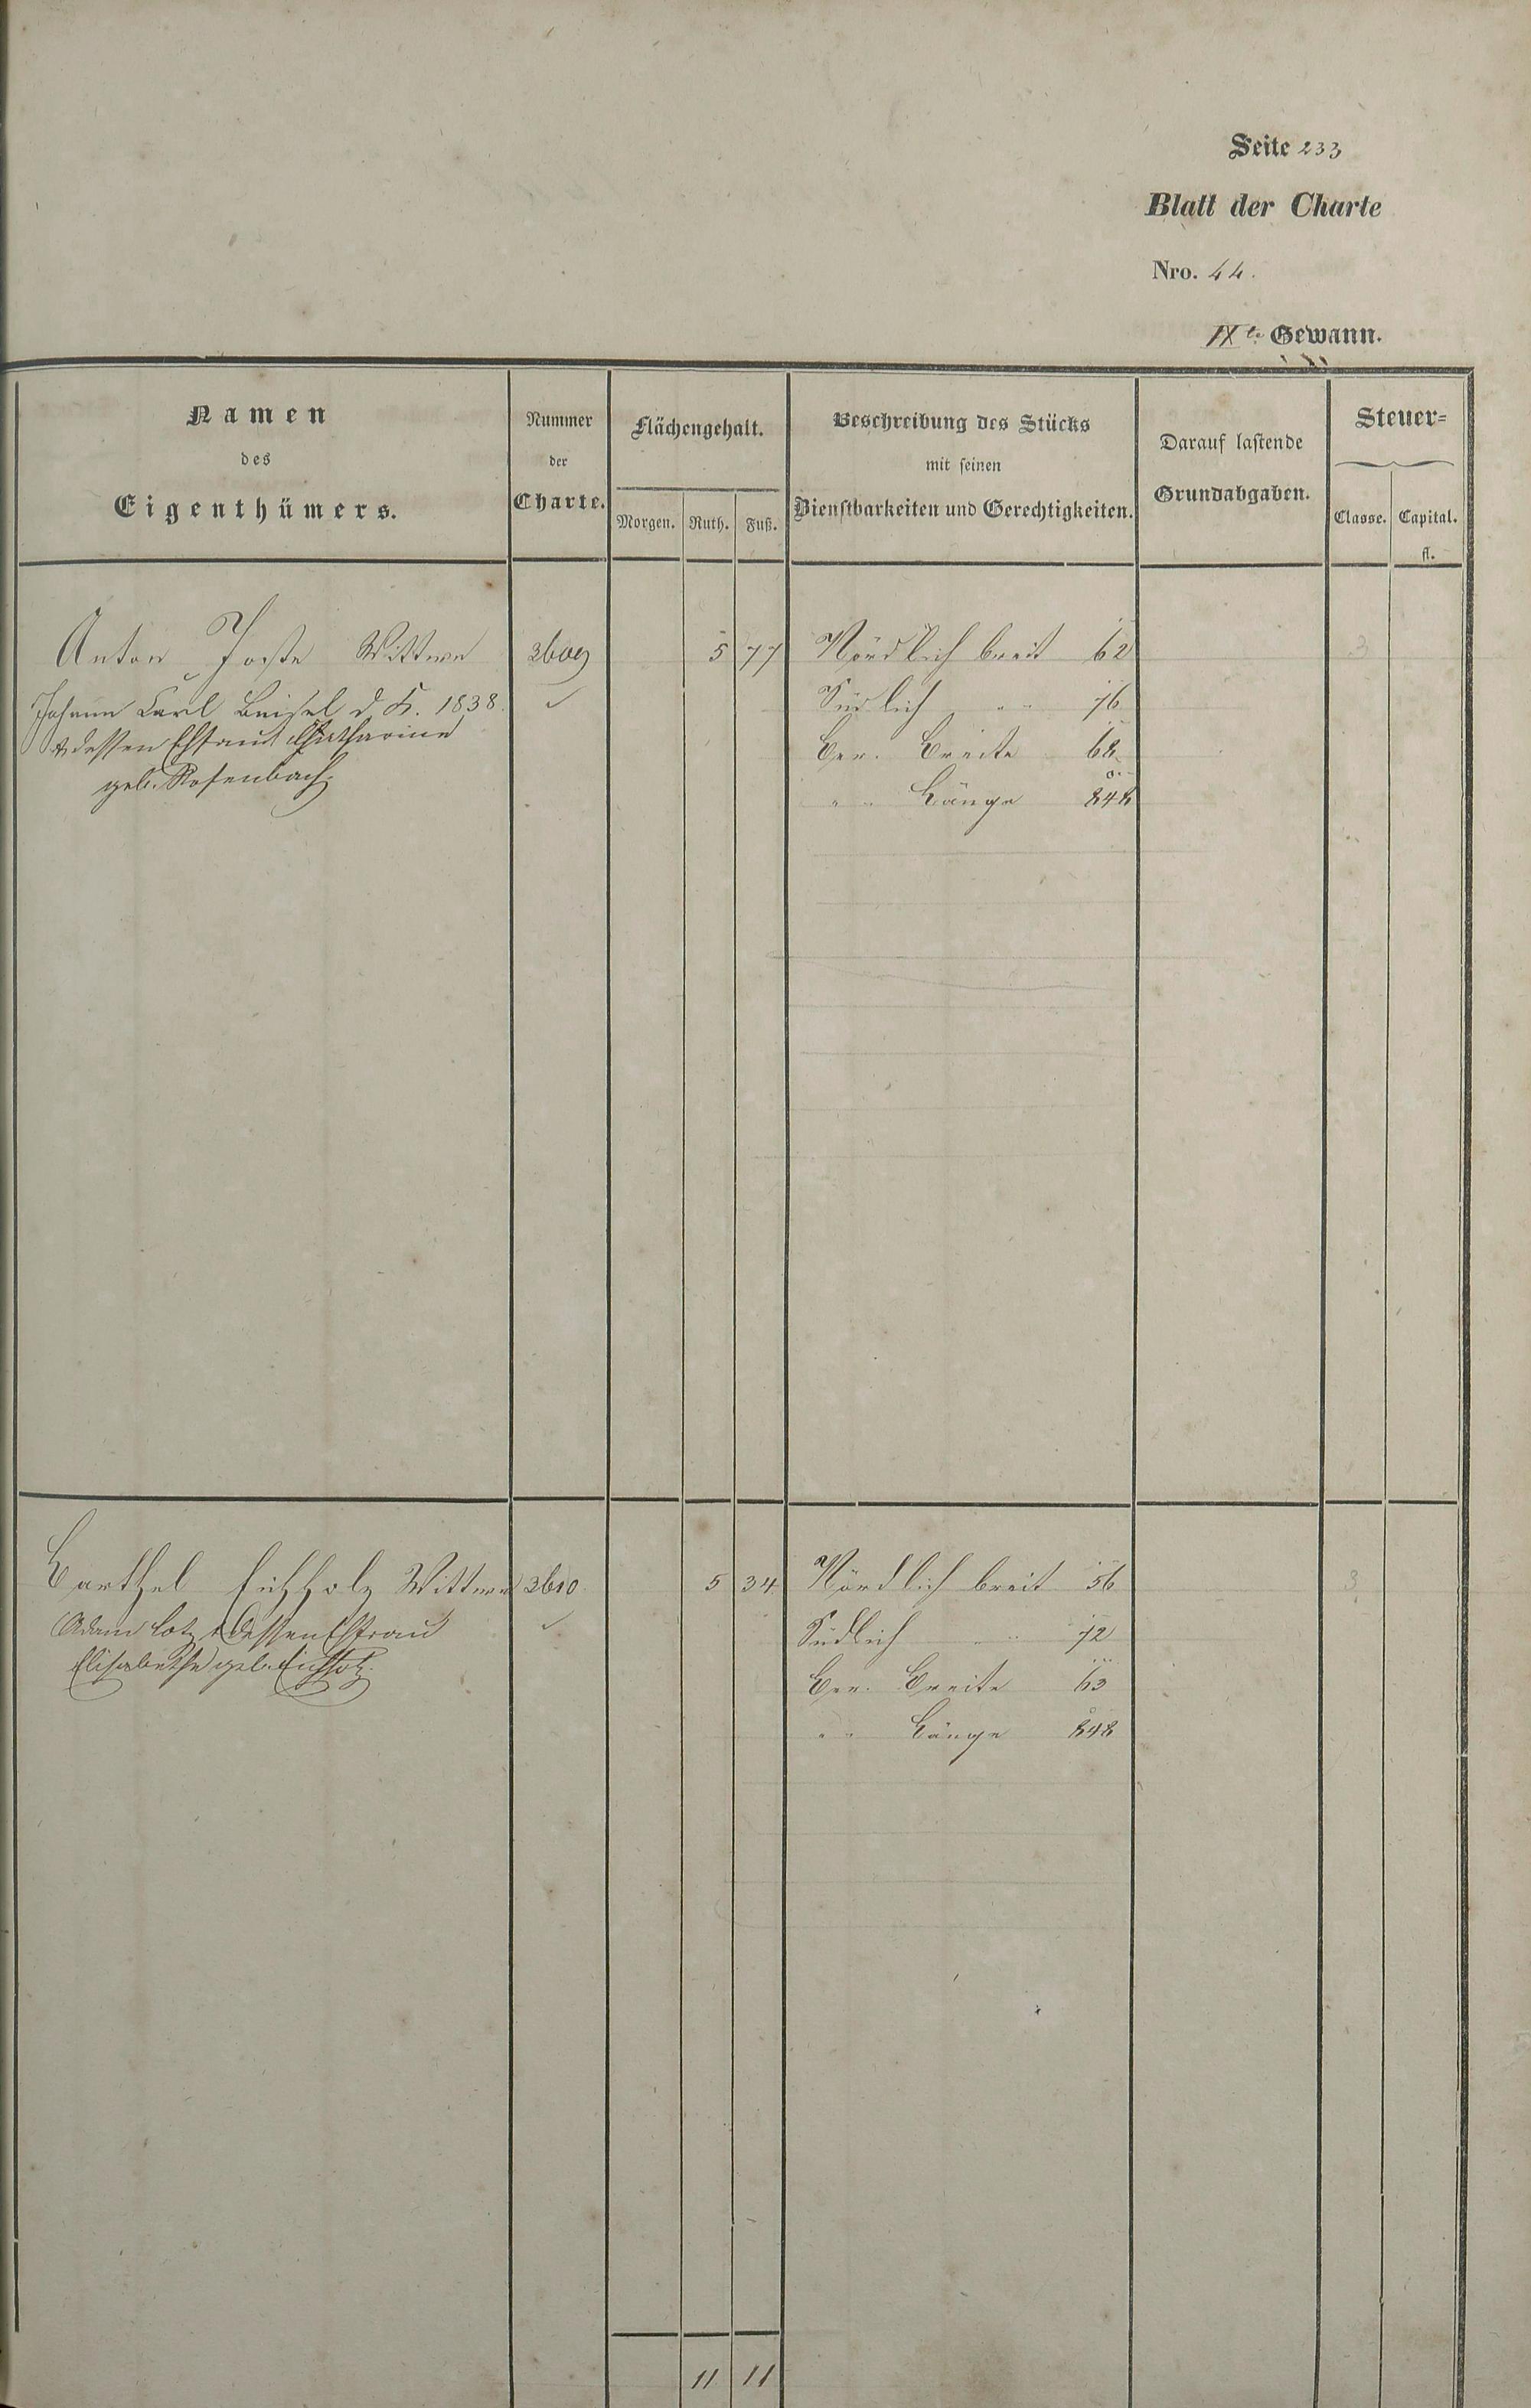 Seite 233
Blatt der Charte
Nro. 44.
IXte Gewann.
Namen
des
Eigenthümers.
Nummer
der
Charte.
Flächengehalt.
Morgen. Ruth. Fuß.
Beschreibung des Stücks
mit seinen
Dienstbarkeiten und Gerechtigkeiten.
Darauf lastende
Grundabgaben.
Steuer=
Classe. Capital.
fl.
Anton Joste Wittwe 3609 5 77 Nördlich breit 62 3
Johann Carl Beisel d. K. 1838. Südlich " " 76
& dessen Ehfrau Chatharine Ger. Breite 68
geb. Rosenbach. " " Länge 848
Barthel Eichholz Wittwe 3610 5 34 Nördlich breit 56 3
Adam Lotz & dessen Ehfrau Südlich " " 72
Elisabethe geb. Eichholz. Ger. Breite 63
" " Länge 848
11 11